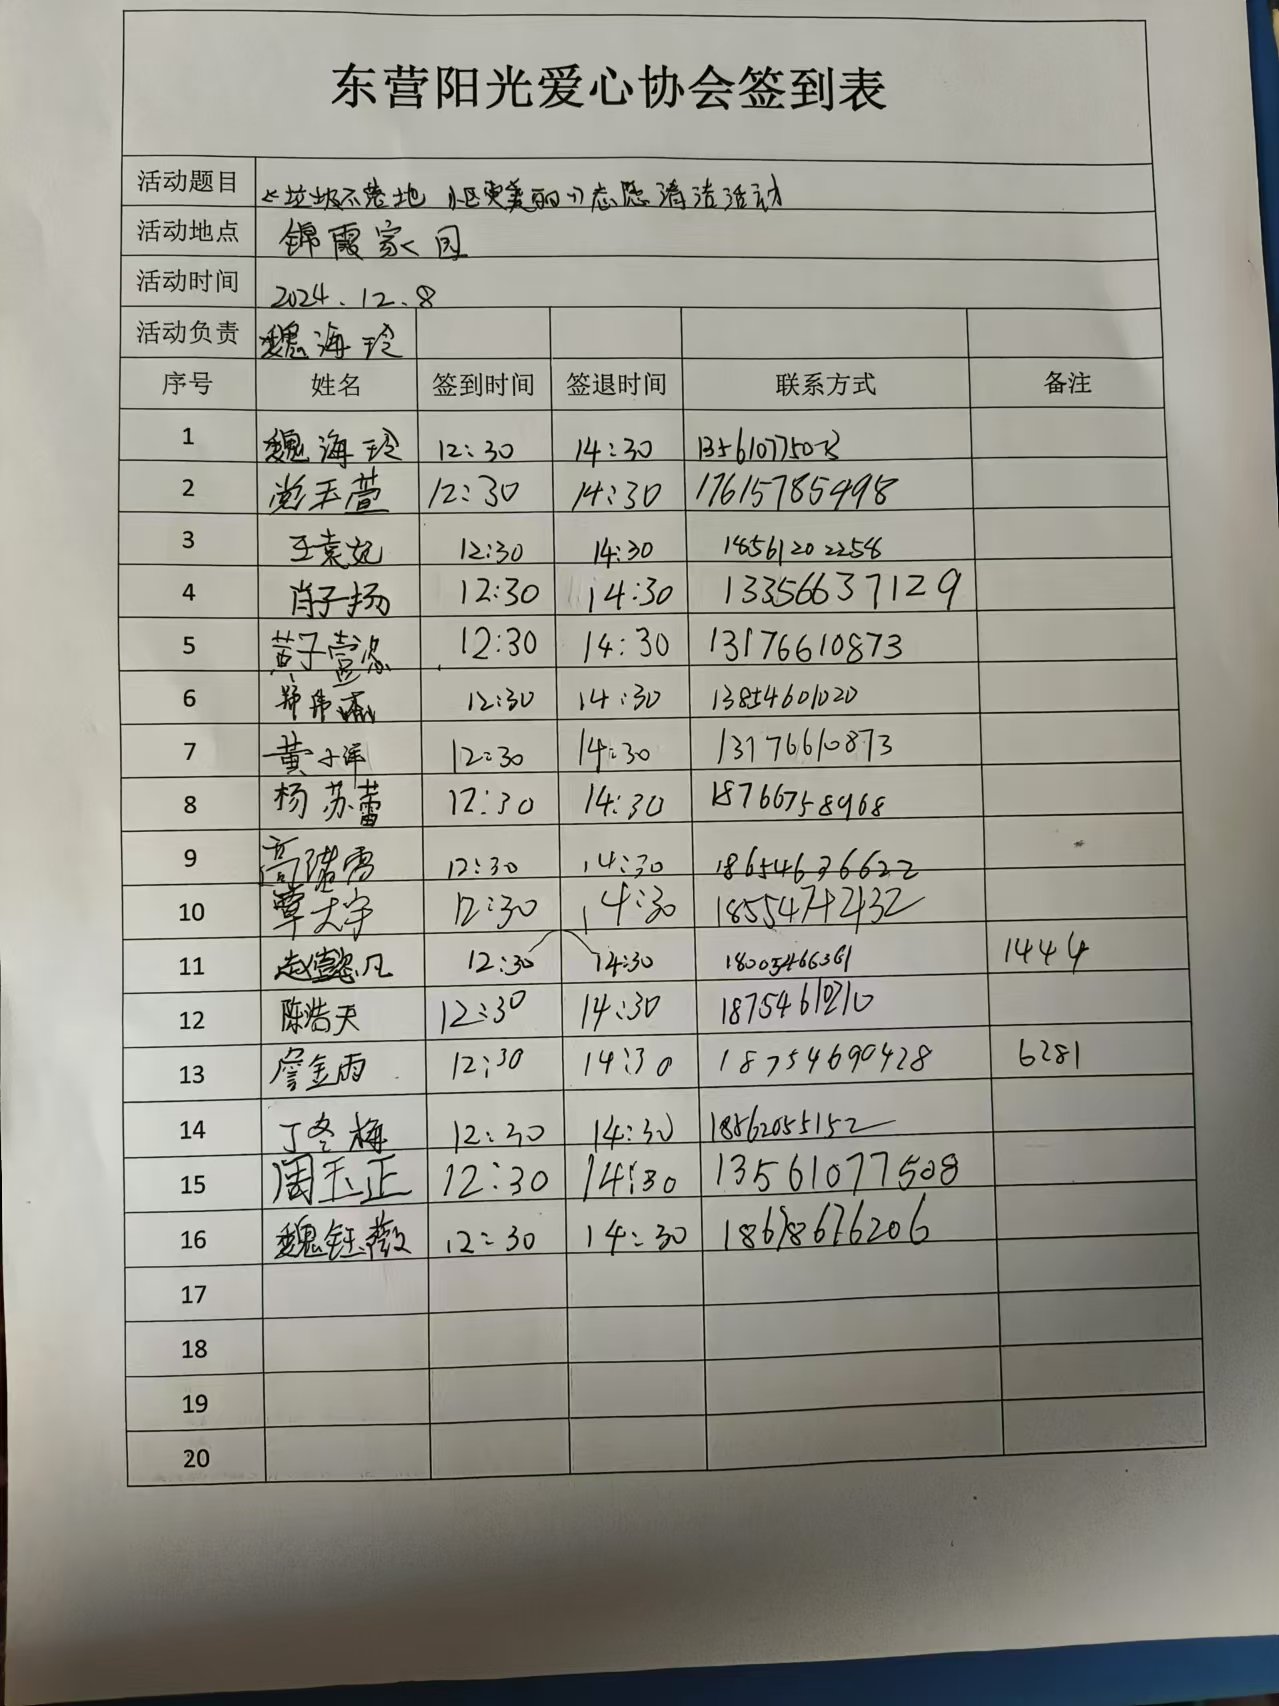 东营阳光爱心协会签到表
活动题目 《垃圾不落地 小区更美丽》志愿清洁活动
活动地点 锦霞家园
活动时间 2024.12.8
活动负责 魏海玲
序号 姓名 签到时间 签退时间 联系方式 备注
1 魏海玲 12:30 14:30
2 彭玉萱 12:30 14:30 17615785498
3 王袁妃 12:30 14:30 18561202258
4 肖子扬 12:30 14:30 13356637129
5 黄子萱 12:30 14:30 13176610873
6 12:30 14:30 13854601020
7 黄子洋 12:30 14:30 13176610873
8 杨苏蕾 12:30 14:30 18766758968
9 高 12:30 14:30 18654636622
10 覃大宇 12:30 14:30 18554742432
11 赵 凡 12:30 14:30 18005466361 1444
12 陈浩天 12:30 14:30
13 詹金雨 12:30 14:30 18754690428 6281
14 丁冬梅 12:30 14:30 18562055152
15 周玉正 12:30 14:30 13561077508
16 魏钰薇 12:30 14:30 18678676206
17
18
19
20